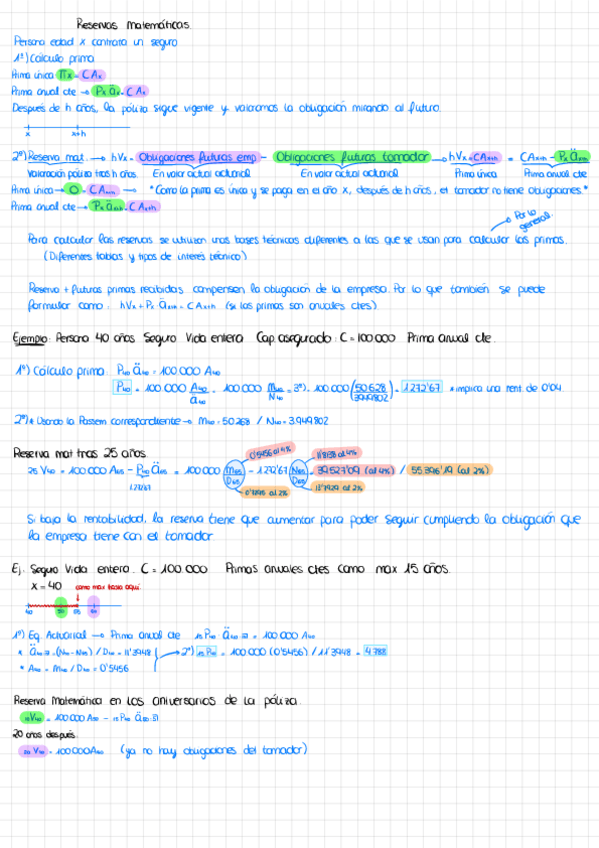 Reservas Matemáticas.
Persona edad x contrata un seguro
1º) Cálculo prima
Prima única Πx = C Ax
Prima anual cte → Px äx = C Ax
Después de h años, la póliza sigue vigente y valoramos la obligación mirando al futuro.
x x+h
2º) Reserva mat. → hVx = Obligaciones futuras emp - Obligaciones futuras tomador → hVx = CAx+h = CAx+h - Px äx+h
Valoración póliza tras h años En valor actual actuarial En valor actual actuarial Prima única Prima anual cte
Prima única → 0 = CAx+h → *Como la prima es única y se paga en el año x, después de h años, el tomador no tiene obligaciones.*
Prima anual cte → Px äx+h = CAx+h
Por lo general.
Para calcular las reservas se utilizan unas bases técnicas diferentes a las que se usan para calcular las primas.
(Diferentes tablas y tipos de interés técnico)
Reserva + futuras primas recibidas compensan la obligación de la empresa. Por lo que también se puede
formular como: hVx + Px äx+h = CAx+h (si las primas son anuales ctes).
Ejemplo: Persona 40 años Seguro Vida entera Cap asegurado: C = 100000 Prima anual cte.
1º) Cálculo prima: P40 ä40 = 100 000 A40
P40 = 100 000 A40/ä40 = 100 000 M40/N40 = 3º) 100 000 (50628/3949802) = 1272'67 *implica una rent. de 0'04.
2º) * Usando la Passem correspondiente → M40 = 50.268 / N40 = 3.949802
Reserva mat tras 25 años. 0'5456 al 4% 11'8138 al 4%
25 V40 = 100 000 A65 - P40 ä65 = 100 000 M65/D65 - 1272'67 N65/D65 = 39527'09 (al 4%) / 55396'19 (al 2%)
1272'67 0'7895 al 2% 13'7929 al 2%
Si baja la rentabilidad, la reserva tiene que aumentar para poder seguir cumpliendo la obligación que
la empresa tiene con el tomador
Ej. Seguro Vida entera. C = 100.000 Primas anuales ctes como max 15 años.
x = 40 como max hasta aquí.
40 50 55 60
1º) Eq. Actuarial → Prima anual cte 15P40 ä40:15 = 100 000 A40
* ä40:15 = (N40 - N55) / D40 = 11'3948 → 2º) 15P40 = 100 000 (0'5456) / 11'3948 = 4788
* A40 = M40 / D40 = 0'5456
Reserva Matemática en los aniversarios de la póliza.
10V40 = 100 000 A50 - 15P40 ä50:5
20 años después.
20 V40 = 100 000 A60 (ya no hay obligaciones del tomador)